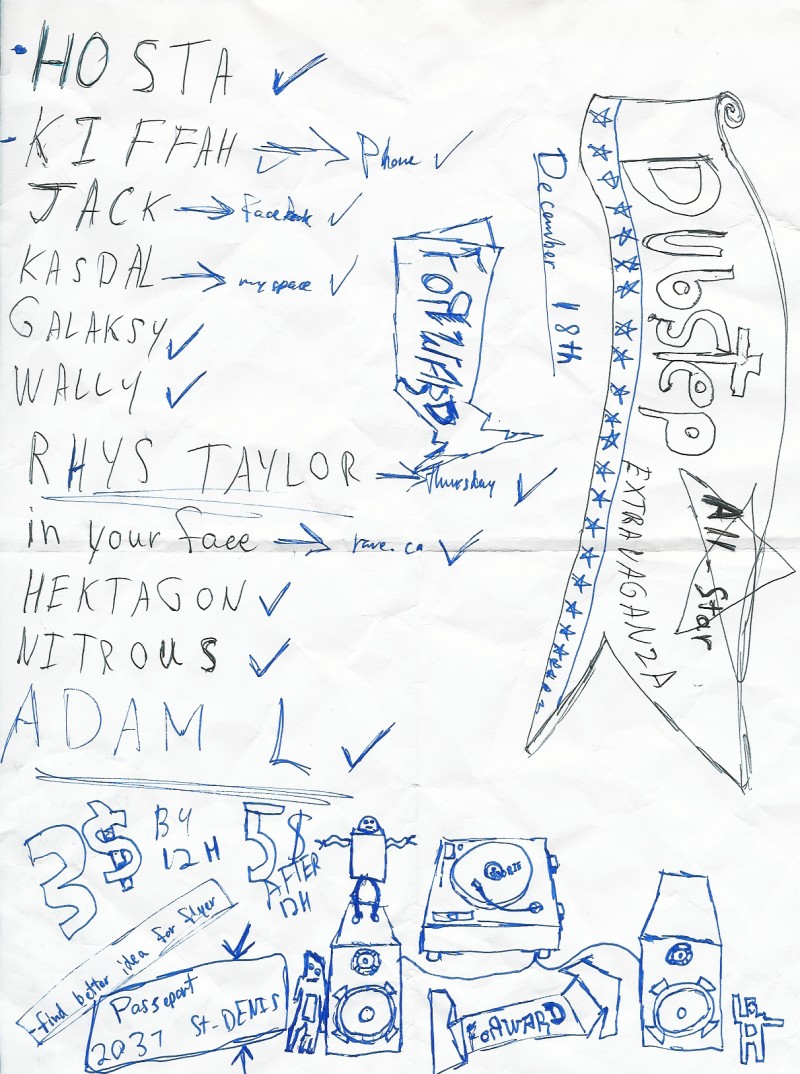 HOSTA
KIFFAH → Phone
JACK → facebook
KASDAL → myspace
GALAKSY
WALLY
RHYS TAYLOR → thursday
in your face → rave.ca
HEKTAGON
NITROUS
ADAM L
FORWARD
December 18th
Dubstep
All-Star
EXTRAVAGANZA
3$ BY
12H
5$
AFTER
12H
-find better idea for flyer
Passeport
2037 St-DENIS
FORWARD